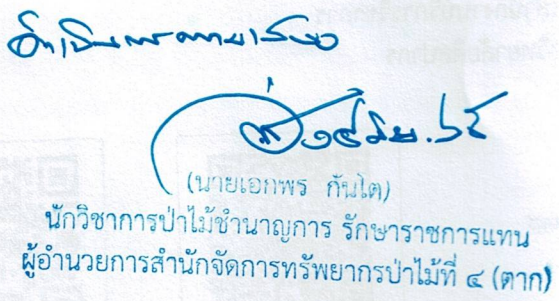 ดำเนินการตามเสนอ
(นายเอกพร กันโต)
นักวิชาการป่าไม้ชำนาญการ รักษาราชการแทน
ผู้อำนวยการสำนักจัดการทรัพยากรป่าไม้ที่ ๔ (ตาก)